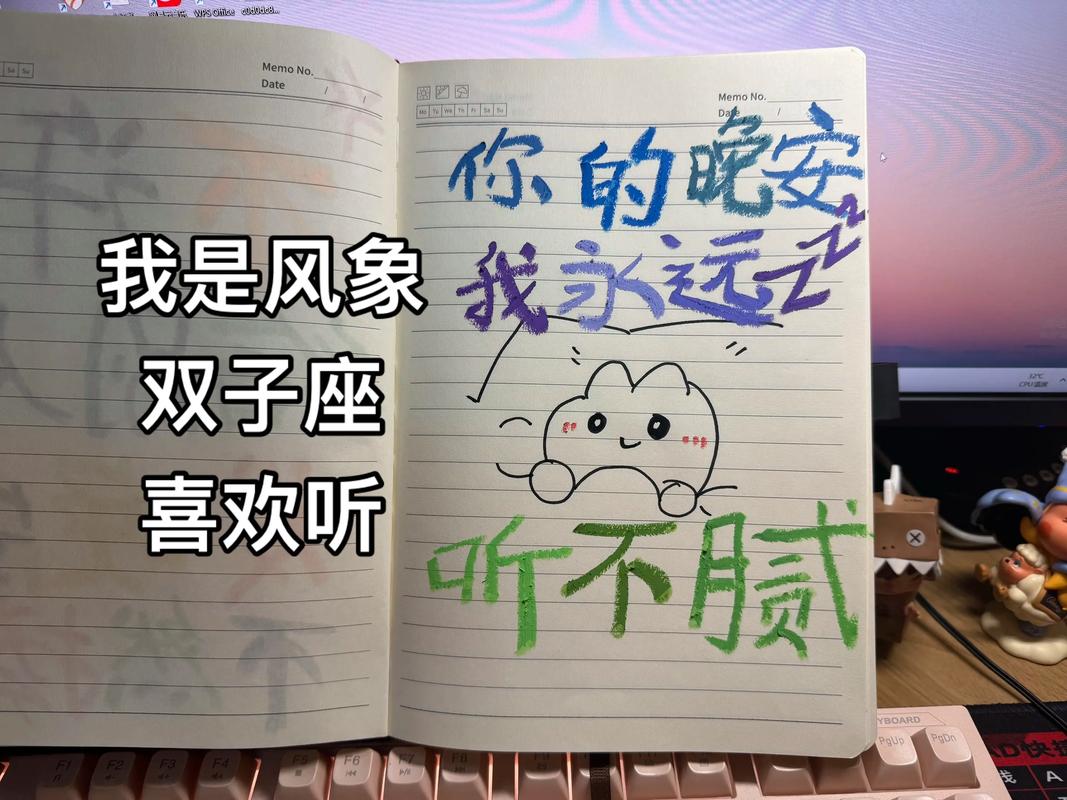 WPS Office c0d0dc8...
Sa Su
Memo No.
Date / /
Mo Tu We Th Fr Sa Su
Memo No.
Date /
你的晚安
zzz
我永远
听不腻
我是风象
双子座
喜欢听
32℃
CPU温度
YBOARD
PgUp PgDn
F1 F2 F3 F4 F5 F6 F7 F8
A